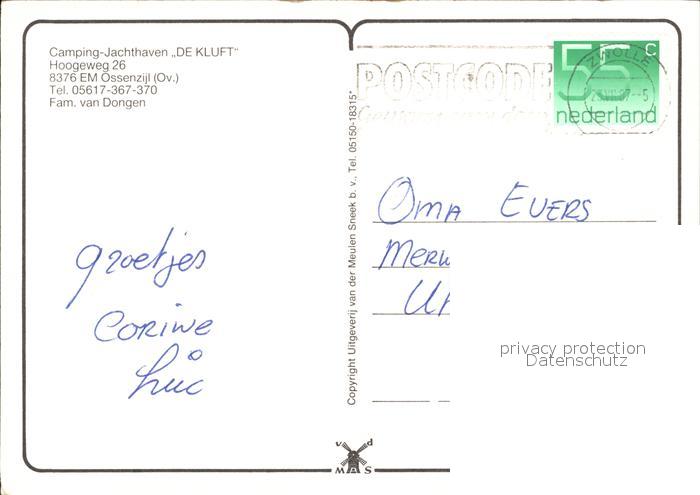 Camping-Jachthaven „DE KLUFT"
Hoogeweg 26
8376 EM Ossenzijl (Ov.)
Tel. 05617-367-370
Fam. van Dongen
POSTCODE
55 c
nederland
ZWOLLE
Copyright Uitgeverij van der Meulen Sneek b. v., Tel. 05150-18315*
Oma Evers
Merw
groetjes
Corine
Luc
privacy protection
Datenschutz
v d
MAS